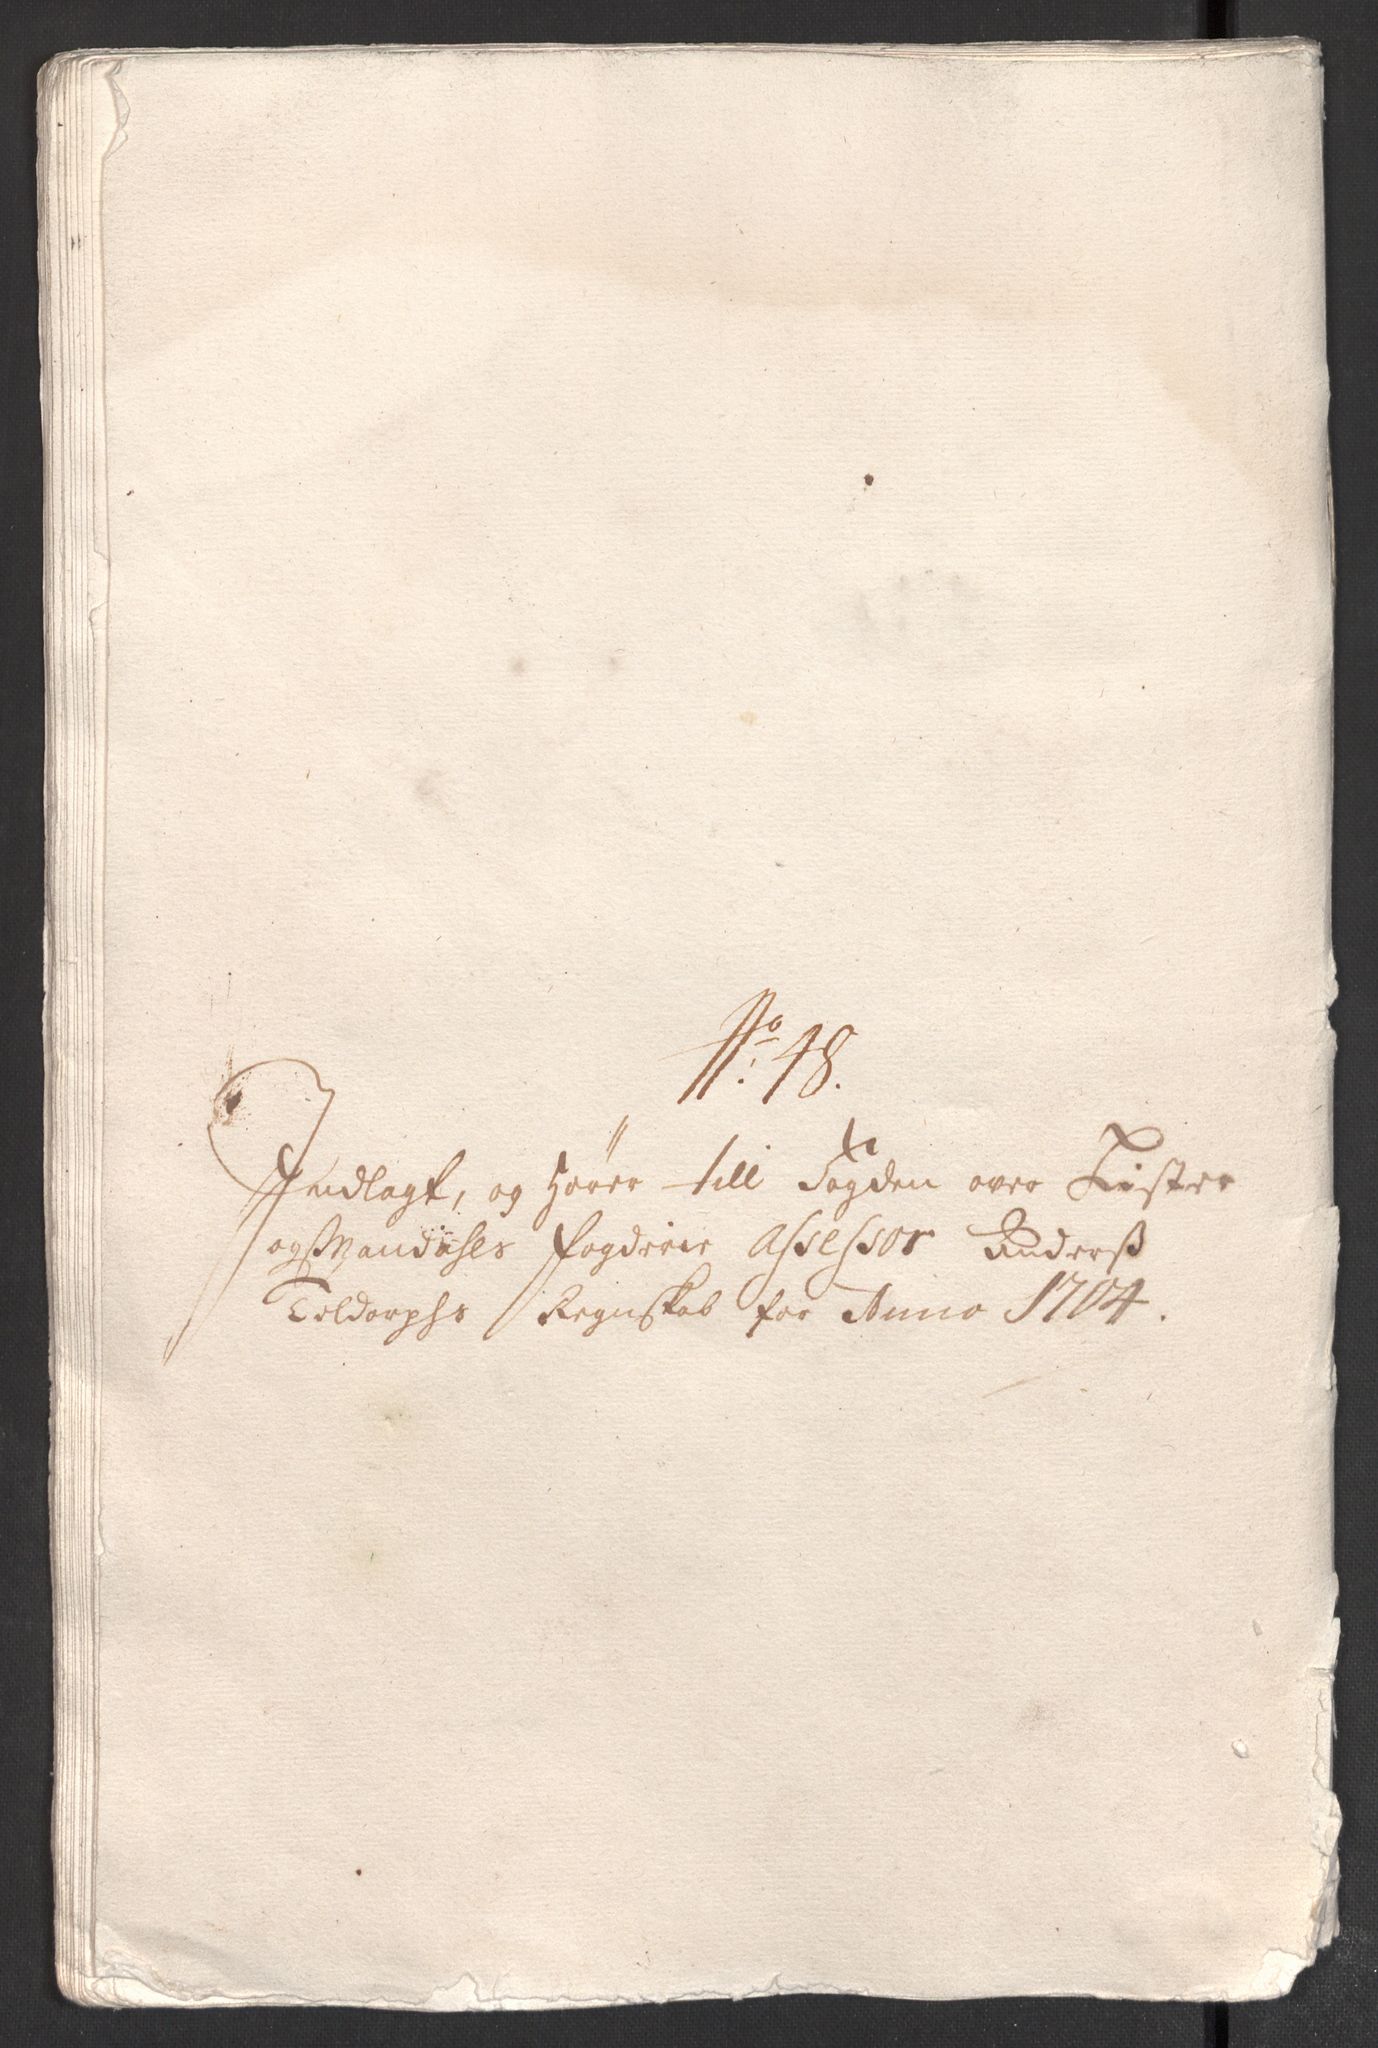 No: 48.
Indlagt, og Hører till Fogden over Lister
og Mandahls fogderie Assessor Anderß
Teldorphs Regnskab for Anno 1704.